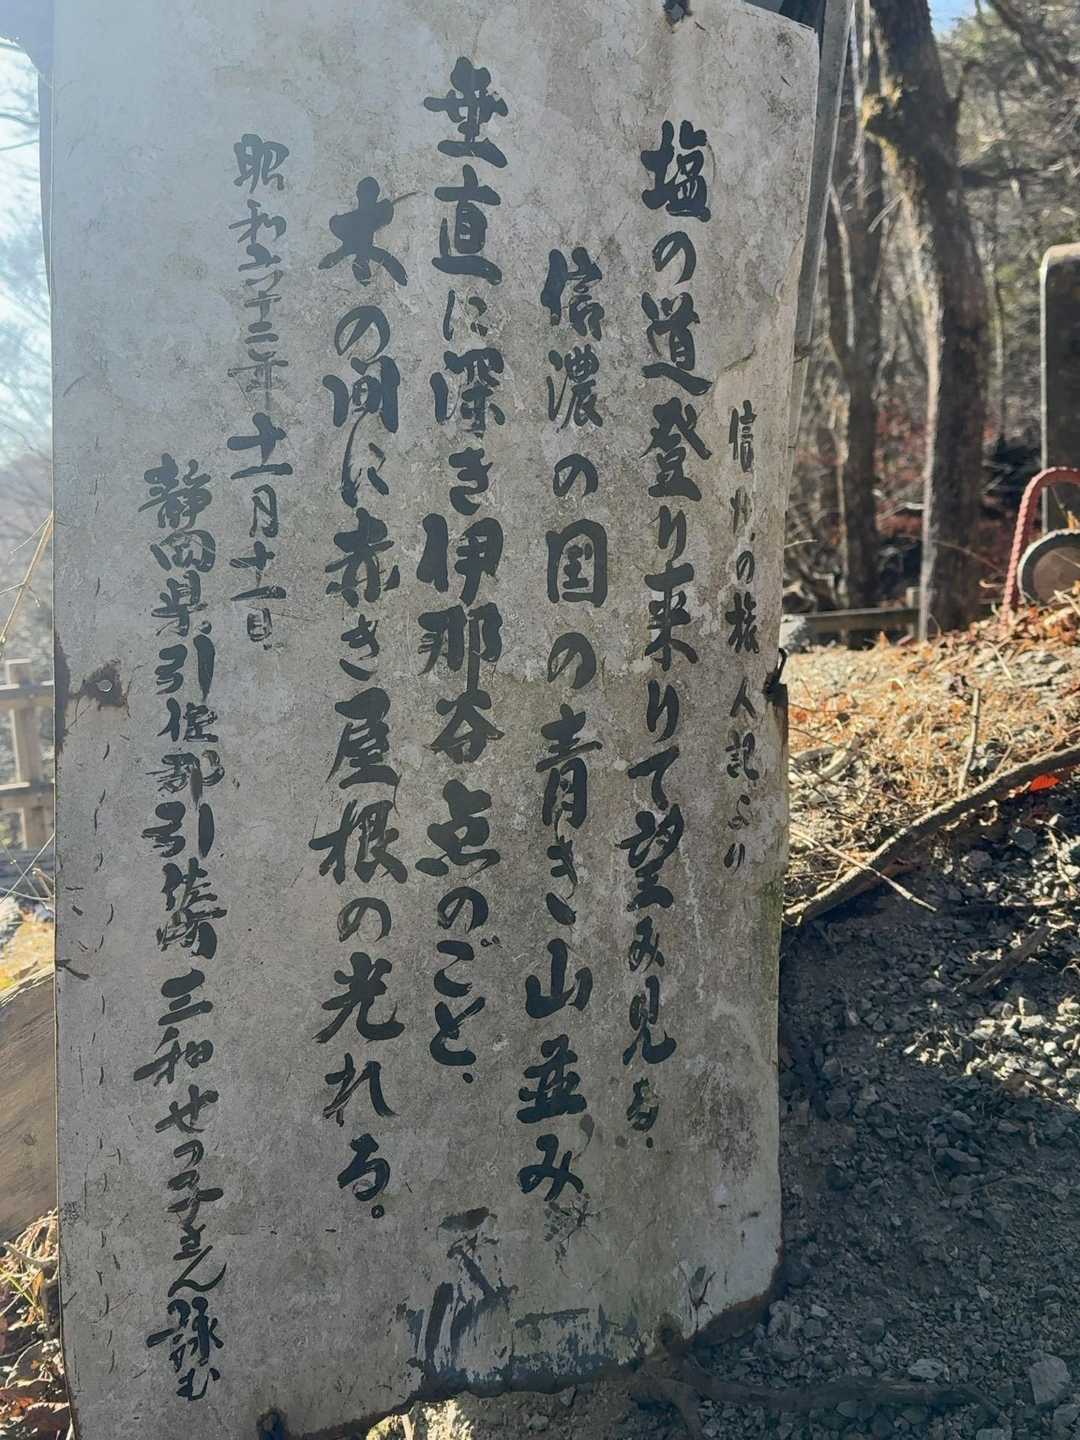 信州の旅人記より
塩の道登り来りて望み見る、
信濃の国の青き山並み
垂直に深き伊那谷点のごと、
木の間に赤き屋根の光れる。
昭和六十二年十一月十一日
静岡県引佐郡引佐町三和せつ子さん詠む